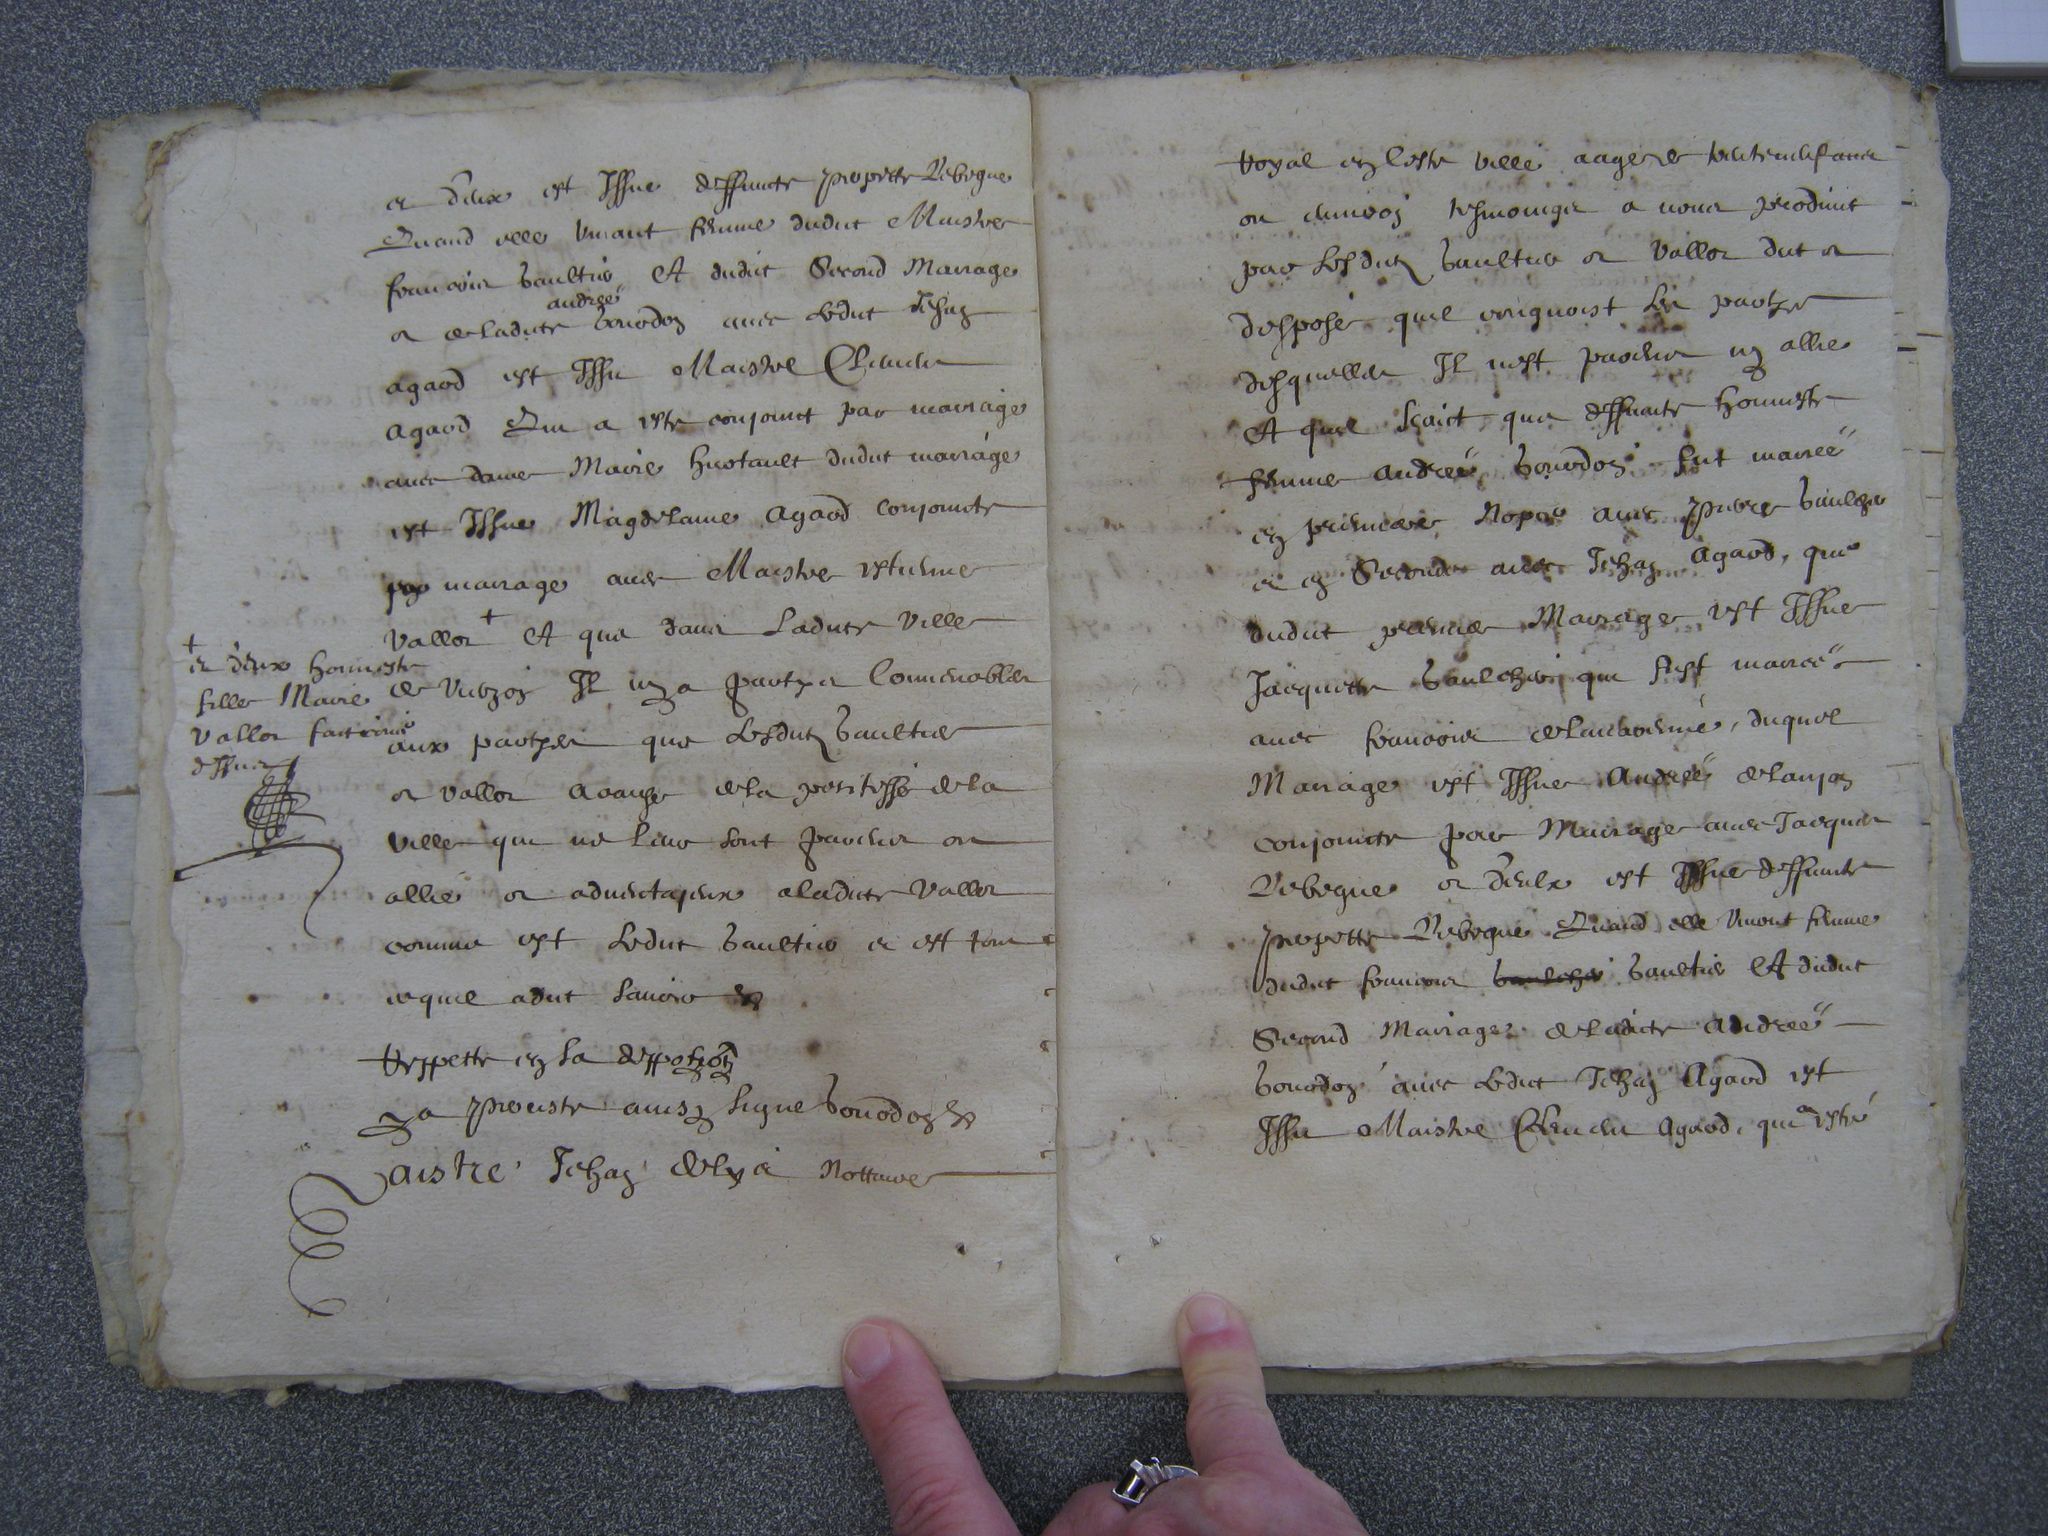 et d'eulx est Issue deffuncte perrette Lebegue
Quand elle vivant femme dudict Maistre
francois Gaultier Et dudict Second Mariage
et de ladicte andree bourdoz avec ledict Jehan
agard est Issu Maistre Clement
agard Qui a este conjoinct par mariage
avec dame Marie hurtault dudict mariage
est Issue Magdelaine agard conjoincte
par mariage avec Maistre estienne
Vallot + Et que dans ladicte ville
+ et deux honneste
fille Marie
Vallot
de Vierzon Il ny a partyes Convenables
aux partyes que lesdictz Gaultier
et Vallot a cause de la petitesse de la
ville qui ne leur sont parens ou
allié et advantageux a ladicte Vallot
comme est ledict Gaultier et est tout
ce quil a dict scavoir
Repette en sa depposition
Y a perciste ainsy signe bourdoz
aistre Jehan delys Nottaire
Royal en ceste ville aagé de
ou environ tesmoingtz a nous produict
par lesdictz Gaultier et Vallot dict et
depposé quil cognoist les partyes
desquelles Il nest parent ny allié
Et quil scaict que deffuncte honneste
femme andree bourdoz fut mariee
en premiere Nopce avec pierre
et en Seconde avec Jehan Agard, que
dudict premier Mariage est Issue
Jacquette qui sest mariee
avec francois duquel
Mariage est Issue Andree
conjoincte par Mariage avec Jacques
Lebegue et d'eulx est Issue deffuncte
perrette Lebegue Quand elle vivant femme
dudict francois Gaultier Et dudict
Second Mariage de ladicte Andree
bourdoz avec ledict Jehan Agard est
Issu Maistre Clement Agard, qui a esté